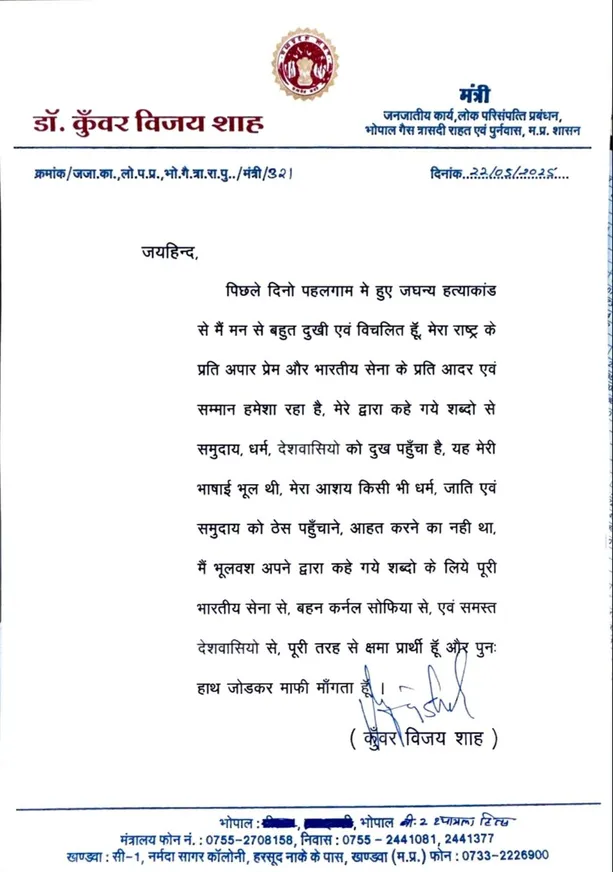 डॉ. कुँवर विजय शाह
मंत्री
जनजातीय कार्य,लोक परिसंपत्ति प्रबंधन,
भोपाल गैस त्रासदी राहत एवं पुर्नवास, म.प्र. शासन
क्रमांक/जजा.का.,लो.प.प्र.,भो.गै.त्रा.रा.पु../मंत्री/321
दिनांक..22/05/2025....
जयहिन्द,
पिछले दिनो पहलगाम मे हुए जघन्य हत्याकांड
से मैं मन से बहुत दुखी एवं विचलित हूँ, मेरा राष्ट्र के
प्रति अपार प्रेम और भारतीय सेना के प्रति आदर एवं
सम्मान हमेशा रहा है, मेरे द्वारा कहे गये शब्दो से
समुदाय, धर्म, देशवासियो को दुख पहुँचा है, यह मेरी
भाषाई भूल थी, मेरा आशय किसी भी धर्म, जाति एवं
समुदाय को ठेस पहुँचाने, आहत करने का नही था,
मैं भूलवश अपने द्वारा कहे गये शब्दो के लिये पूरी
भारतीय सेना से, बहन कर्नल सोफिया से, एवं समस्त
देशवासियो से, पूरी तरह से क्षमा प्रार्थी हूँ और पुनः
हाथ जोडकर माफी माँगता हूँ ।
( कुँवर विजय शाह )
भोपाल : भोपाल
मंत्रालय फोन नं. : 0755-2708158, निवास : 0755 - 2441081, 2441377
खण्डवा : सी-1, नर्मदा सागर कॉलोनी, हरसूद नाके के पास, खण्डवा (म.प्र.) फोन : 0733-2226900